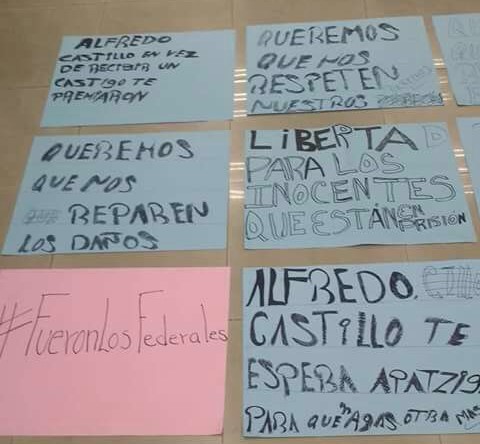 ALFREDO
CASTILLO EN VEZ
DE RECIBIR UN
CASTIGO TE
PREMIARON
QUEREMOS
QUE NOS
RESPETEN
NUESTROS
QUEREMOS
QUE NOS
REPAREN
LOS DAÑOS
LIBERTAD
PARA LOS
INOCENTES
QUE ESTÁN EN
PRISION
#FueronLosFederales
ALFREDO.
CASTILLO TE
ESPERA APATZIG
PARA QUE HAGAS OTRA MAS